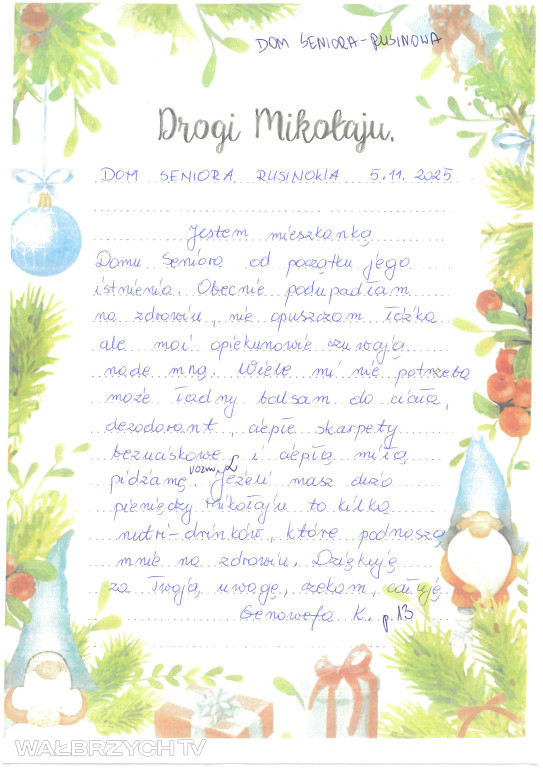 DOM SENIORA-RUSINOWA
Drogi Mikołaju,
DOM SENIORA RUSINOWA 5.11.2025
Jestem mieszkanką
Domu Seniora od początku jego
istnienia. Obecnie podupadłam
na zdrowiu, nie opuszczam łóżka
ale moi opiekunowie czuwają
nade mną. Wiele mi nie potrzeba
może ładny balsam do ciała,
dezodorant, ciepłe skarpety
bezuciskowe i ciepłą miłą
pidżamę. rozm. L Jeżeli masz dużo
pieniędzy Mikołaju to kilka
nutri-drinków, które podnoszą
mnie na zdrowiu. Dziękuję
za Twoją uwagę, czekam, całuję
Genowefa K. p.13
WAŁBRZYCH TV